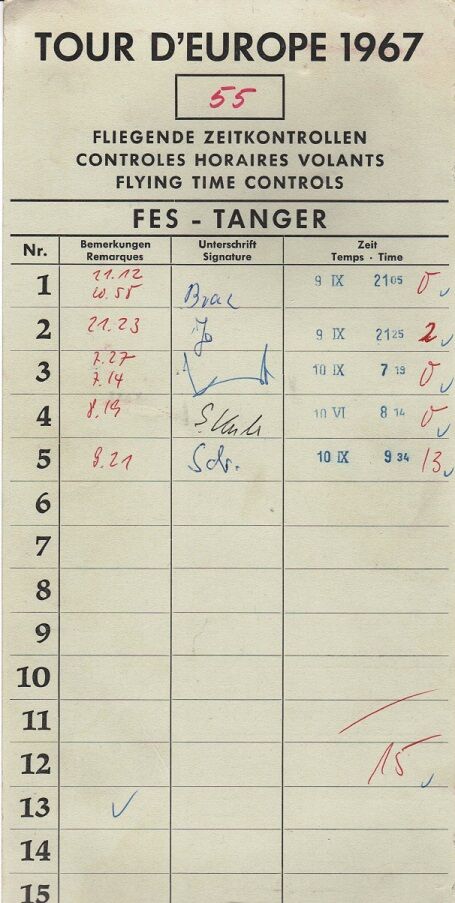 TOUR D'EUROPE 1967
55
FLIEGENDE ZEITKONTROLLEN
CONTROLES HORAIRES VOLANTS
FLYING TIME CONTROLS
FES - TANGER
Nr. Bemerkungen Unterschrift Zeit
Remarques Signature Temps · Time
1 21.12 9 IX 21 05 0
20.55
2 21.23 9 IX 21 25 2
3 7.27 10 IX 7 19 0
7.14
4 8.19 10 VI 8 14 0
5 9.21 Sch. 10 IX 9 34 13
6
7
8
9
10
11
12 15
13
14
15